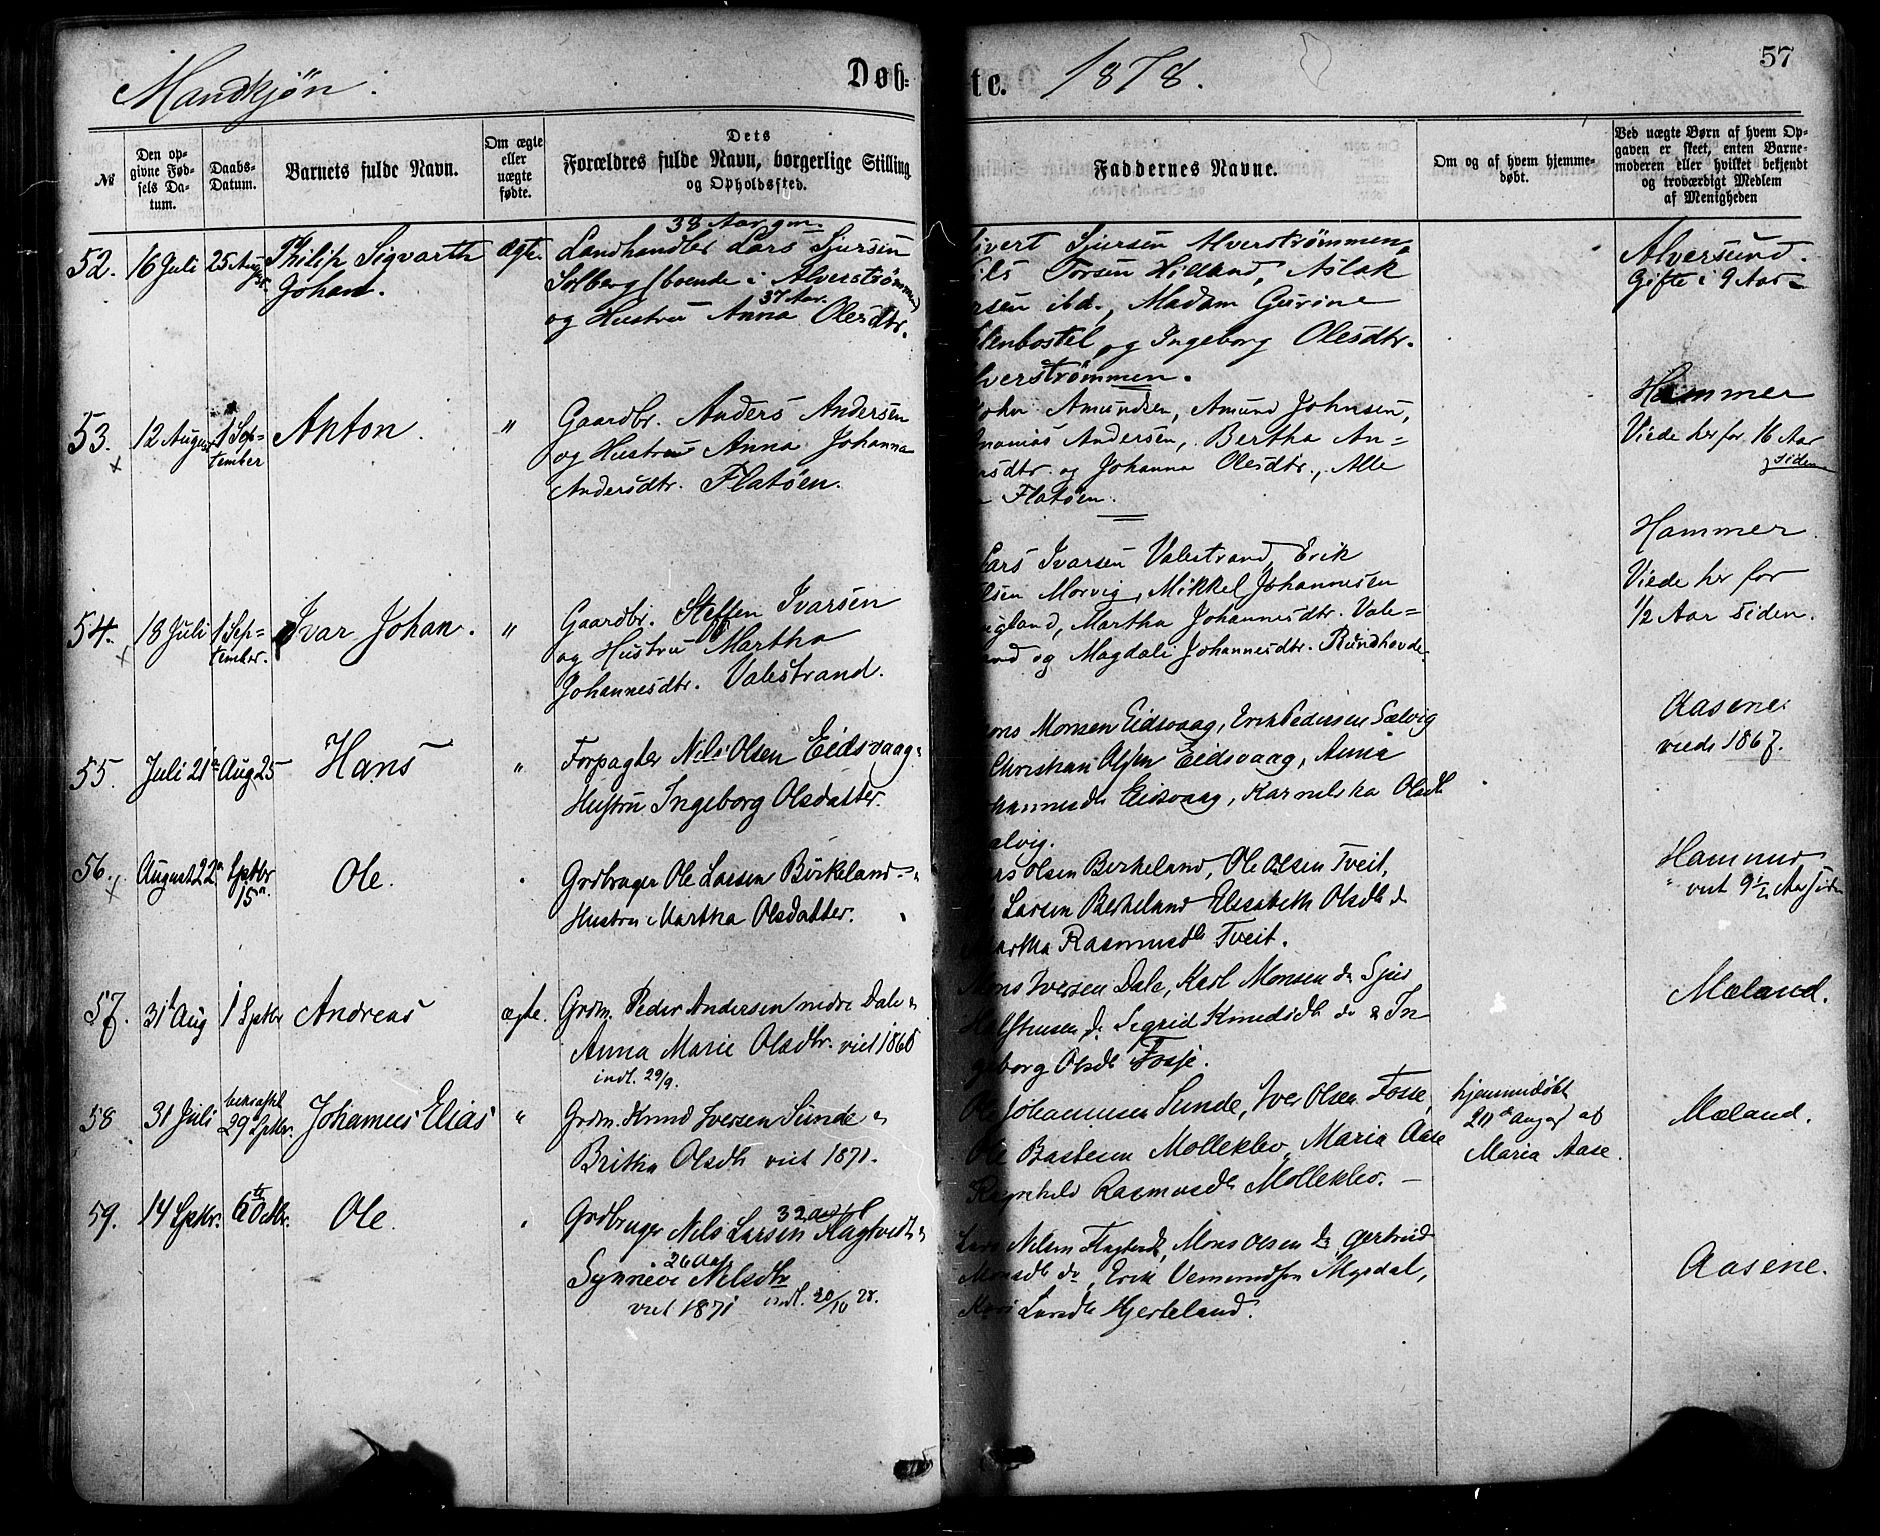 Mandkjøn.
Døb-
te.
1878.
57
№
Den op-
givne Fød-
sels Da-
tum.
Daabs-
Datum.
Barnets fulde Navn.
Om ægte
eller
uægte
fødte.
Dets
Forældres fulde Navn, borgerlige Stilling
og Opholdssted.
Faddernes Navne.
Om og af hvem hjemme-
døbt.
Ved uægte Børn af hvem Op-
gaven er skeet, enten Barne-
moderen eller hvilket bekjendt
og troværdigt Medlem
af Menigheden
52.
16 Juli
25 August
Philip Sigvarth
Johan.
ægte.
38 Aar gm
Landhandler Lars Sjursen
Solberg, boende i Alverstrømmen
37 Aar.
og Hustru Anna Olesdtr.
Sivert Sjursen Alverstrømmen,
Nils Torsen Hilland, Aslak
rsen ibd., Madam Gurine
lenbostel, og Ingeborg Olesdtr.
lverstrømmen.
Alversund.
Gifte i 9 Aar
53.
12 August
1 Sep-
tember
Anton.
"
Gaardbr. Anders Andersen
og Hustru Anna Johanna
Andersdtr. Flatøen.
John Amundsen, Amund Johnsen,
Ananias Andersen, Bertha An-
rsdtr. og Johanna Olesdtr., Alle
Flatøen.
Hammer
Viede her for 16 Aar
siden
54.
18 Juli
1 Sep-
tember.
Ivar Johan.
"
Gaardbr. Steffen Ivarsen
og Hustru Martha
Johannesdtr. Valestrand.
Lars Ivarsen Valestrand, Erik
lsen Morvig, Mikkel Johannesen
ugland, Martha Johannesdtr. Vale-
and og Magdali Johannesdtr. Rundhovde
Hammer
Viede her for
1/2 Aar siden.
55.
Juli 21de
Aug 25
Hans
"
Forpagter Nils Olsen Eidsvaag
Hustru Ingeborg Olsdatter.
ons Monsen Eidsvaag, Erik Pedersen Salvig
Christian Olsen Eidsvaag, Anna
hannesdtr Eidsvaag, Karnilska Olsdtr
alvig.
Aasene
viede 1867.
56.
August 22n
Sptbr
15n
Ole.
Grdbruger Ole Larsen Børkeland
Hustru Martha Olsdatter.
rs Olsen Berkeland, Ole Olsen Tveit,
Larsen Berkeland Elisabeth Olsdtr do
Martha Rasmusdtr Tveit.
Hammer
viet 9 1/2 Aar siden
57.
31t Aug
1 Sptbr
Andreas
ægte.
Grdm. Peder Andersen nedre Dale
Anna Marie Olsdtr. viet 1868
indl. 29/9.
Mons Iversen Dale, Karl Monsen do Sjur
Helstensen do Sigrid Knudsdtr do & In
geborg Olsdtr Fosse.
Mæland.
58
31 Juli
bekræft
29 Sptbr.
Johannes Elias
"
Grdm. Knud Iversen Sunde
Britha Olsdtr viet 1871.
Ole Johannesen Sunde, Iver Olsen Fosse,
Ole Bastesen Mollekleo, Maria Aase
Ragnhild Rasmusdtr Mollekleo.
hjemmedøbt
20de August af
Maria Aase.
Mæland.
59.
14 Sptbr.
6te Octbr.
Ole.
32 Aar
Grdbruger Nils Larsen Flagtvedt
26 Aar
Synneve Nilsdtr
viet 1871
indl. 20/10 78.
Lars Nilsen Flagtvedt, Mons Olsen do Gertrud
Monsdtr do, Erik Vemundsen Mysdal,
Kari Larsdtr Hjerteland.
Aasene.